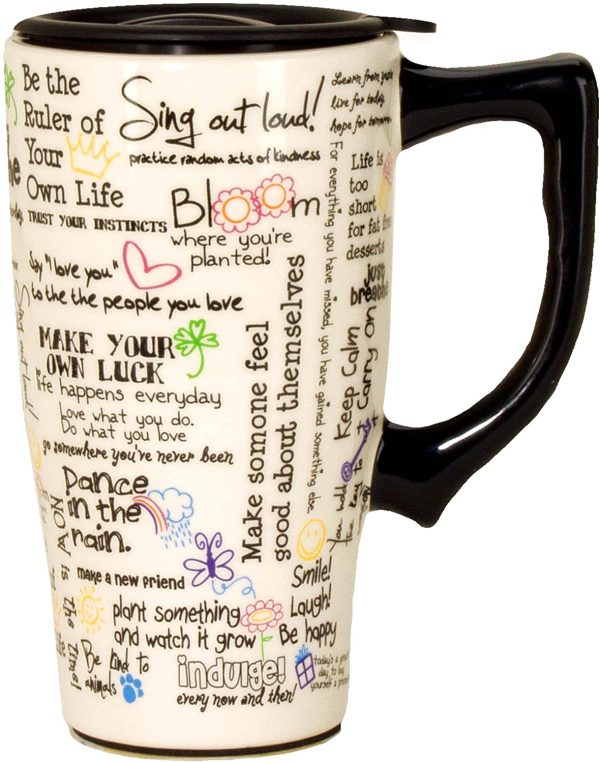 Be the
Ruler of
Your
Own Life
Sing out loud!
practice random acts of kindness
TRUST YOUR INSTINCTS
Bloom
where you're
planted!
Say "I love you"
to the the people you love
MAKE YOUR
OWN LUCK
life happens everyday
Love what you do.
Do what you love
go somewhere you've never been
Dance
in the
rain.
NOW
is the
time!
make a new friend
plant something
and watch it grow
Be kind to
animals
indulge!
every now and then!
Make somone feel
good about themselves
For everything you have missed, you have gained something else.
Learn from
live for today,
hope for
Life is
too
short
for fat free
desserts
just
breathe
Keep Calm
& Carry On
You hold
the key to
Smile!
Laugh!
Be happy
today's a
day to buy
yourself a present